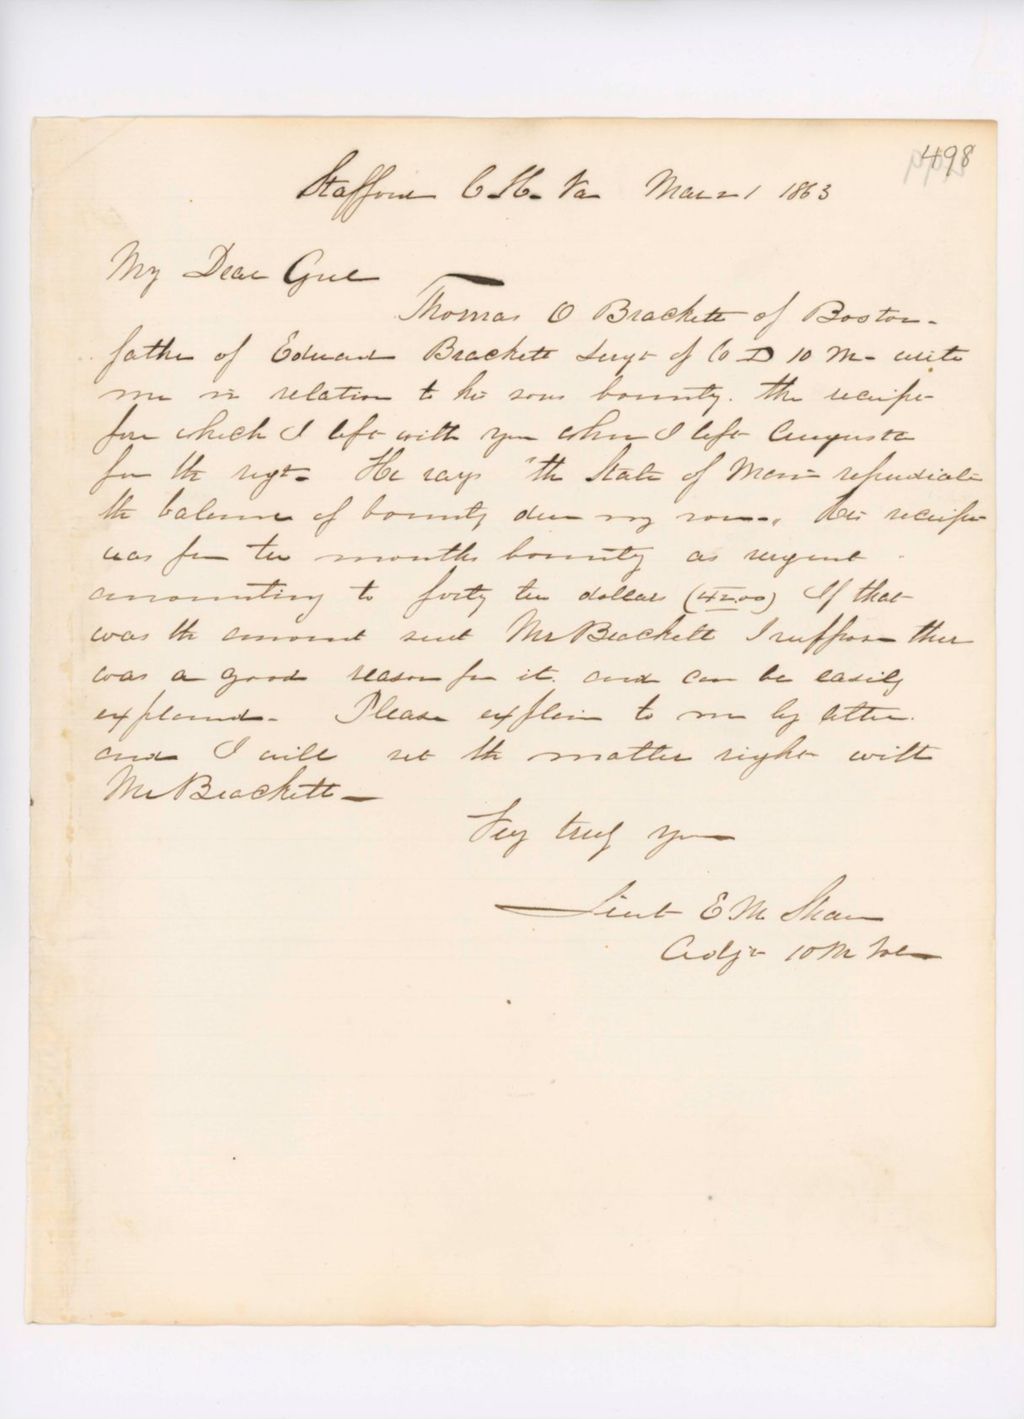 498
Stafford C. H. Va Mar 21 1863
My Dear Genl
Thomas O Brackett of Boston
father of Edward Brackett Sergt of Co D 10 Me writes
me in relation to his sons bounty. the receipt
for which I left with you when I left Augusta
for the regt. He says "the State of Maine repudiates
the balance of bounty due my son." His receipt
was for two months bounty as sergeant
amounting to forty two dollars (42.00) If that
was the amount sent Mr Brackett I suppose there
was a good reason for it. and can be easily
explained. Please explain to me by letter.
and I will set the matter right with
Mr Brackett
Very truly yours
Lieut E M Shaw
Adjt 10 M Vols